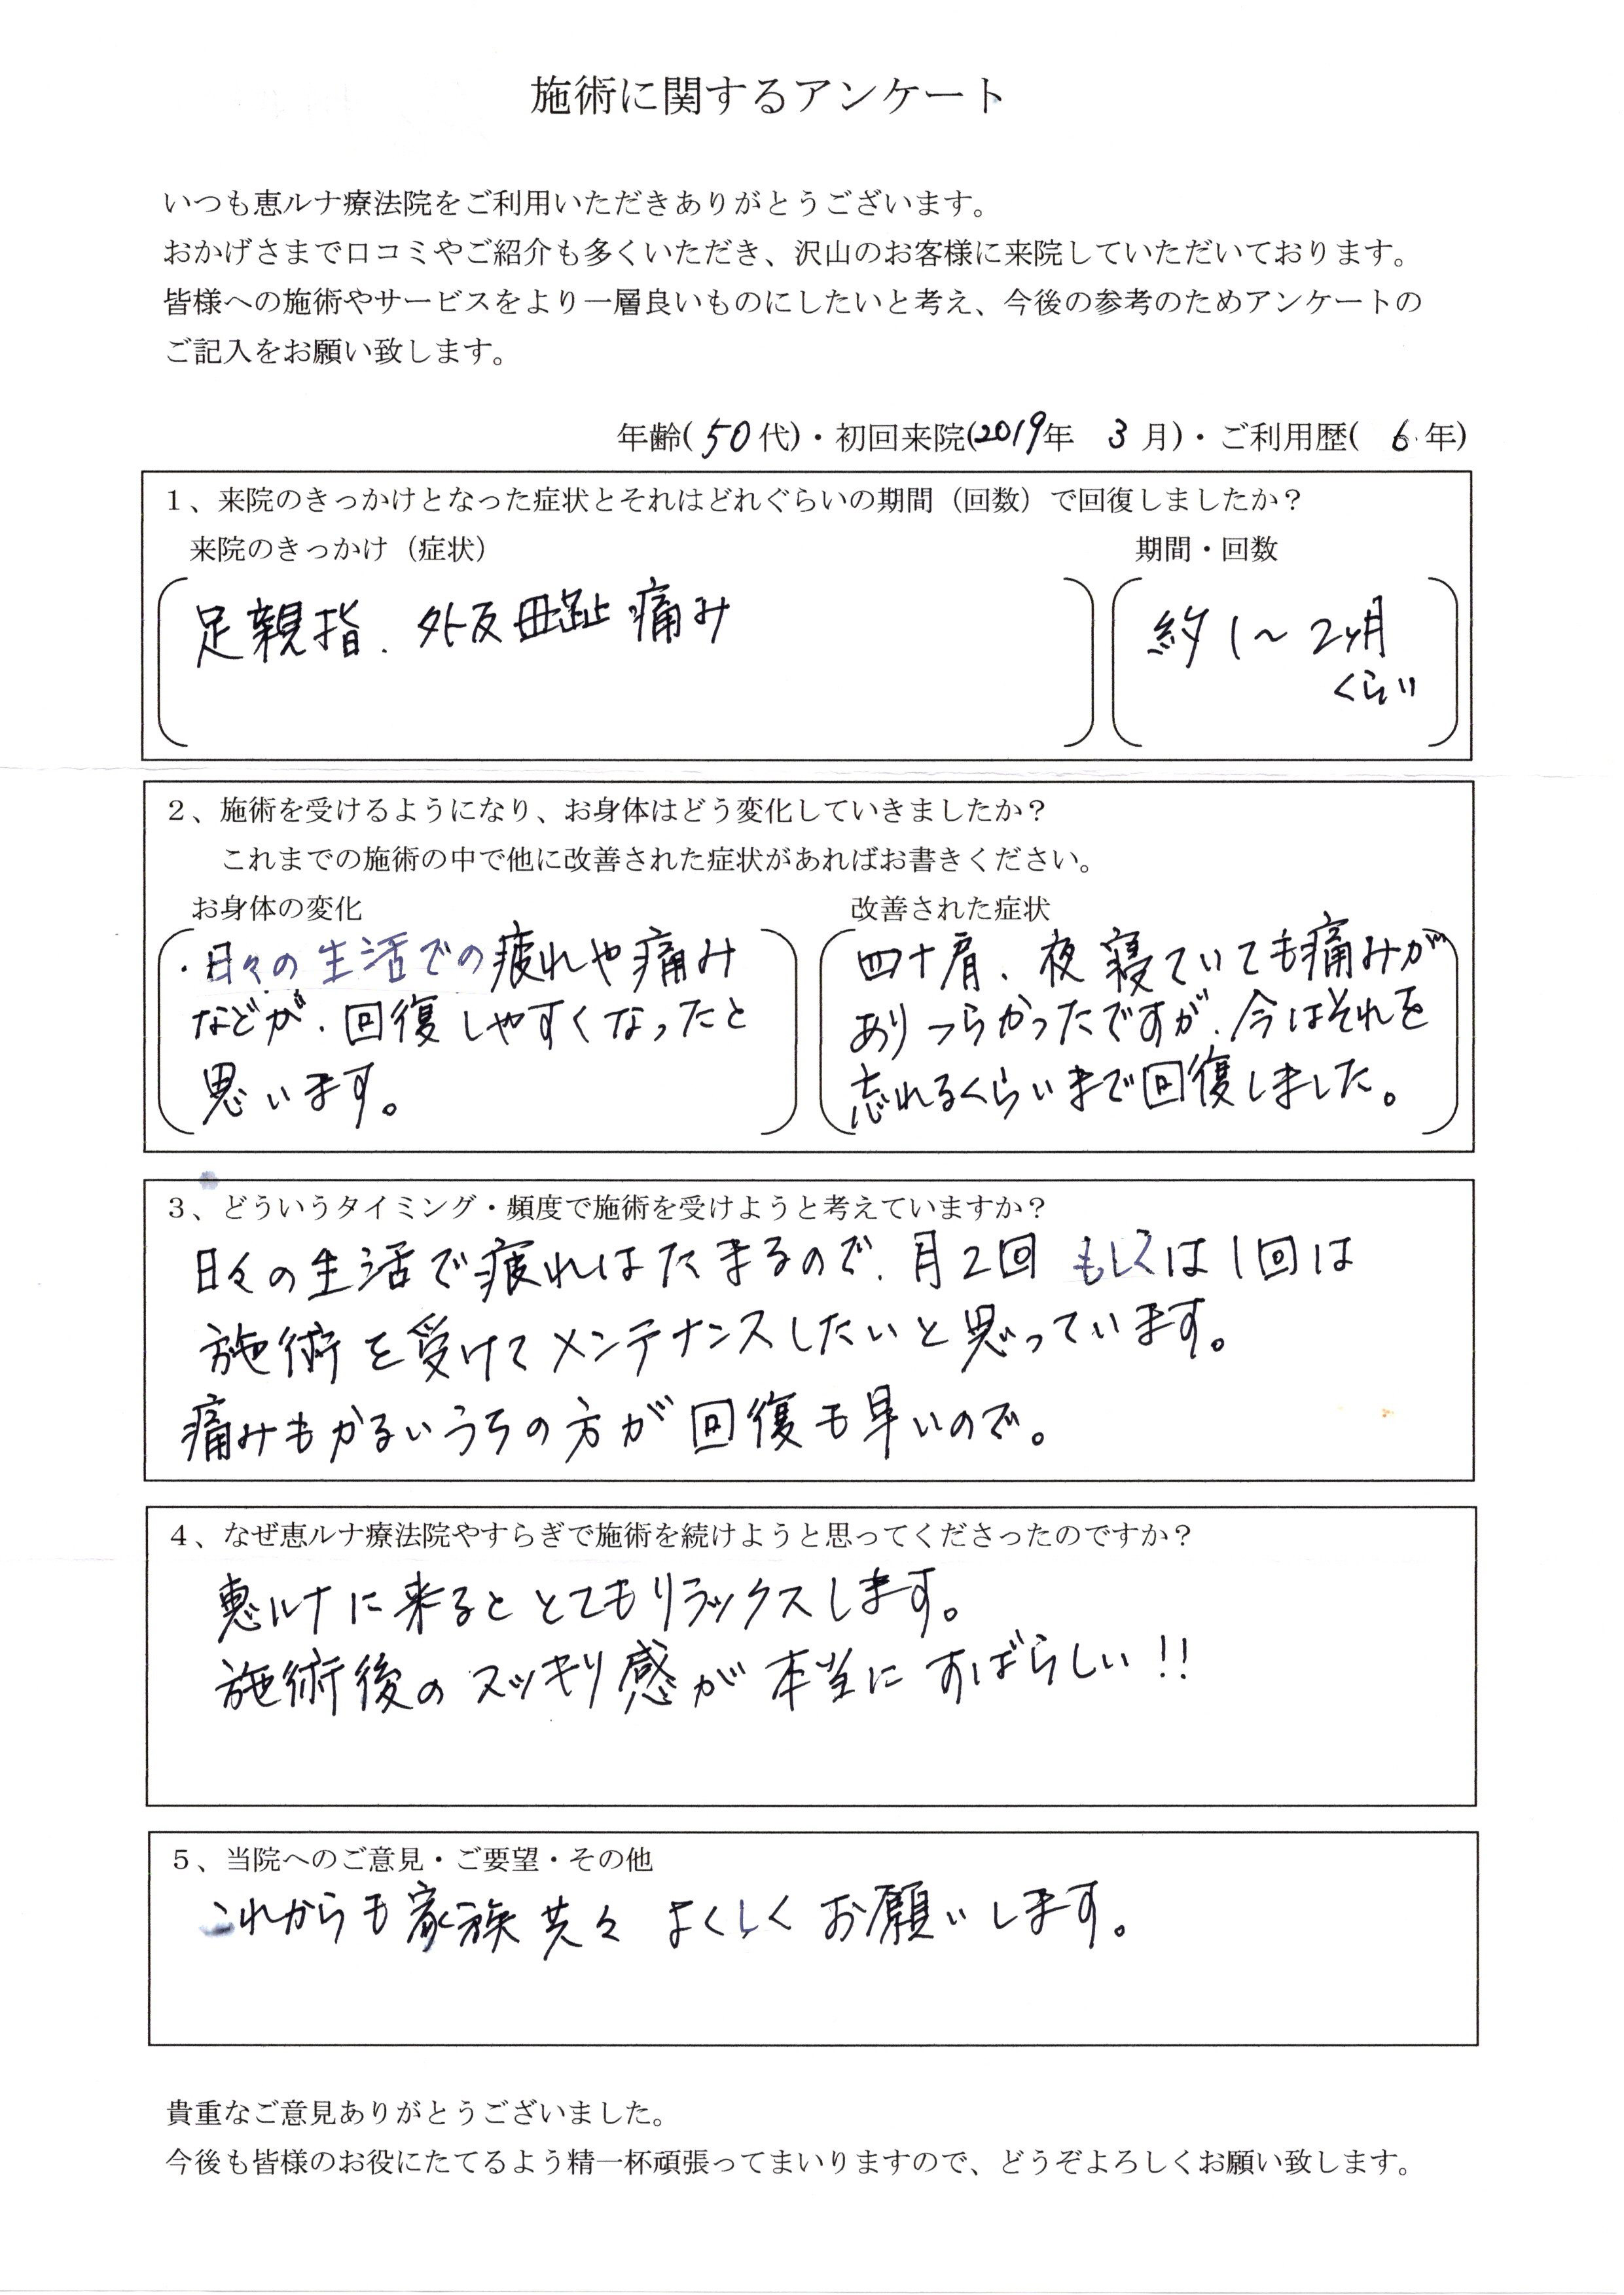 施術に関するアンケート
いつも恵ルナ療法院をご利用いただきありがとうございます。
おかげさまで口コミやご紹介も多くいただき、沢山のお客様に来院していただいております。
皆様への施術やサービスをより一層良いものにしたいと考え、今後の参考のためアンケートの
ご記入をお願い致します。
年齢(50代)・初回来院(2019年 3月)・ご利用歴( 6年)
1、来院のきっかけとなった症状とそれはどれぐらいの期間（回数）で回復しましたか？
来院のきっかけ（症状）
足親指、外反母趾痛み
期間・回数
約1〜2ヶ月
くらい
2、施術を受けるようになり、お身体はどう変化していきましたか？
これまでの施術の中で他に改善された症状があればお書きください。
お身体の変化
・日々の生活での疲れや痛み
などが、回復しやすくなったと
思います。
改善された症状
四十肩、夜寝ていても痛みが
ありつらかったですが、今はそれを
忘れるくらいまで回復しました。
3、どういうタイミング・頻度で施術を受けようと考えていますか？
日々の生活で疲れはたまるので、月2回もしくは1回は
施術を受けてメンテナンスしたいと思っています。
痛みもかるいうちの方が回復も早いので。
4、なぜ恵ルナ療法院やすらぎで施術を続けようと思ってくださったのですか？
恵ルナに来るととてもリラックスします。
施術後のスッキリ感が本当にすばらしい!!
5、当院へのご意見・ご要望・その他
これからも家族共々よくしくお願いします。
貴重なご意見ありがとうございました。
今後も皆様のお役にたてるよう精一杯頑張ってまいりますので、どうぞよろしくお願い致します。